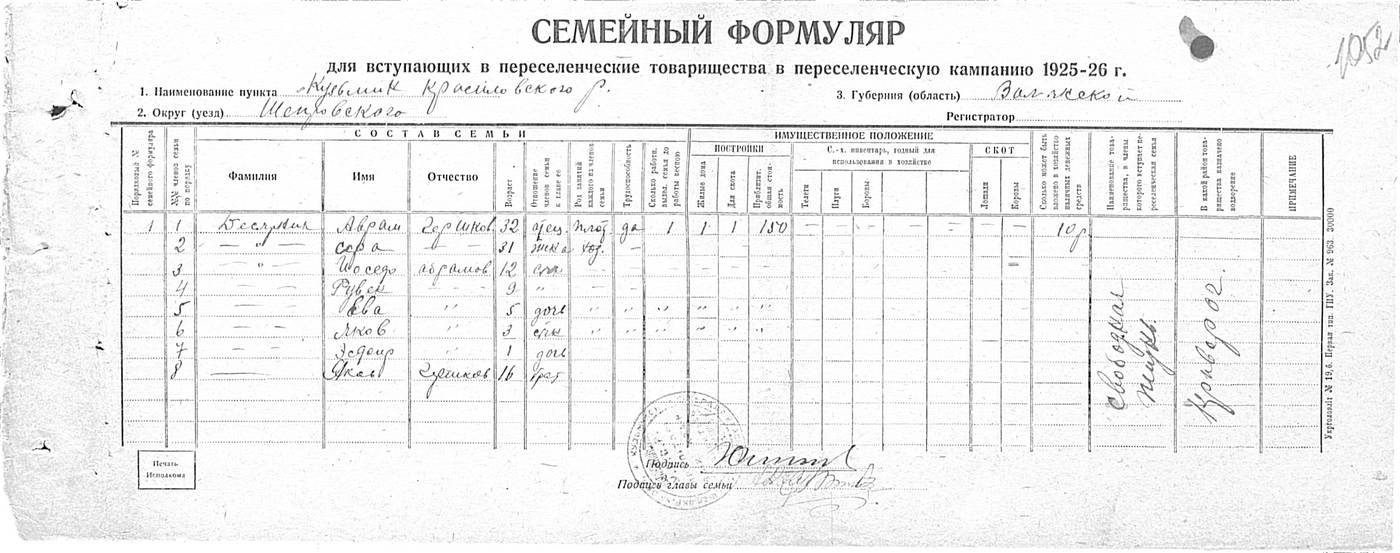 1052
СЕМЕЙНЫЙ ФОРМУЛЯР
для вступающих в переселенческие товарищества в переселенческую кампанию 1925-26 г.
1. Наименование пункта Кузьмин Красиловского р. 3. Губерния (область) Волынской
2. Округ (уезд) Шепетовского Регистратор
СОСТАВ СЕМЬИ ИМУЩЕСТВЕННОЕ ПОЛОЖЕНИЕ
ПОСТРОЙКИ С.-х. инвентарь, годный для использования в хозяйстве СКОТ
Порядковый № семейного формуляра
№№ членов семьи по порядку
Фамилия
Имя
Отчество
Возраст
Отношение членов семьи к главе ее
Род занятий каждого из членов семьи
Трудоспособность
Сколько работн. выдел. семья до работы весною
Жилые дома
Для скота
Приблизит. общая стоимость
Телеги
Плуги
Бороны
Лошади
Коровы
Сколько может быть вложено в хозяйство наличных денежных средств
Наименование товарищества, в члены которого вступает переселенческая семья
В какой район товарищества назначено водворение
ПРИМЕЧАНИЕ
1 1 Аврам Гершков 32 отец плот да 1 1 1 150 — — — — — — — 10 р
2 — " — Сора — 31 жена хоз. —
3 — " Иосеф Абрамов 12 сын — —
4 — — Рувен — 9 "
5 — — Ева " 5 дочь " " " " " "
6 — — Яков " 3 сын " " " " " "
7 — — Эсфир " 1 дочь
8 Гершков 16 брат
Криворог
Печать Исполкома
Подпись
Подпись главы семьи
Укрголовліт № 19,6. Первая тип. ГПУ. Зак. № 963. 30000